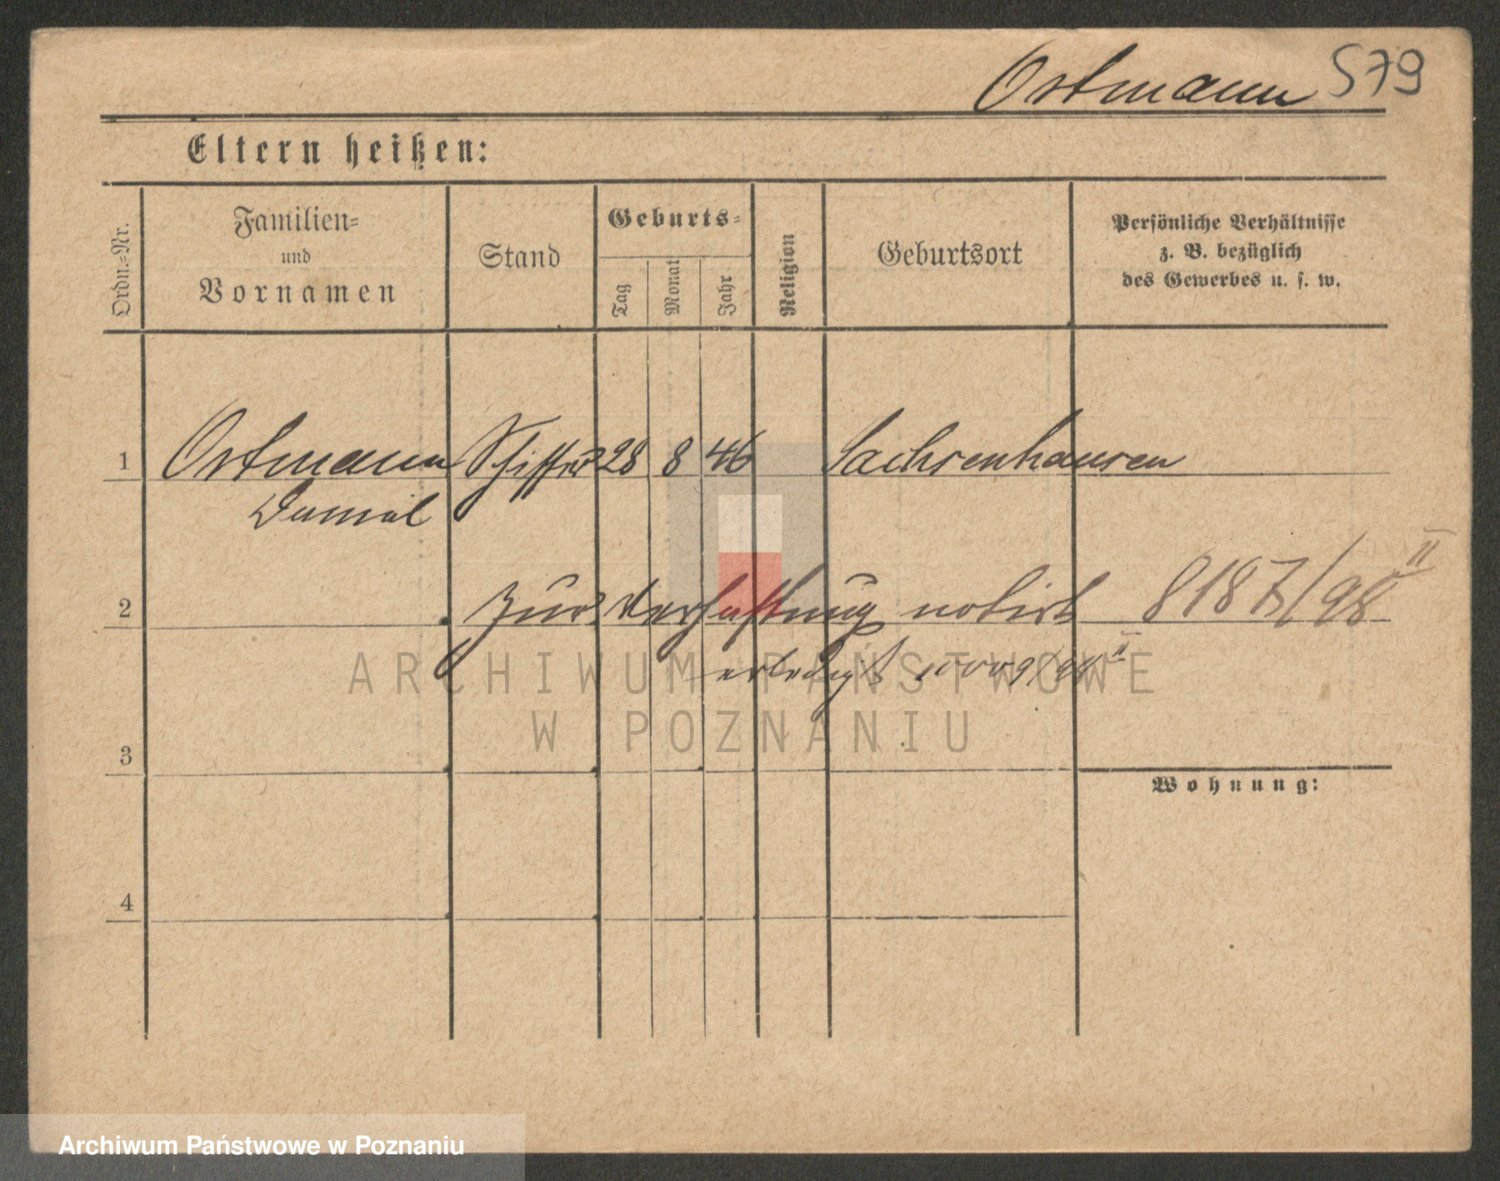 Ostmann 579
Eltern heißen:
Ordn.-Nr.
Familien-
und
Vornamen
Stand
Geburts-
Tag
Monat
Jahr
Religion
Geburtsort
Persönliche Verhältnisse
z. B. bezüglich
des Gewerbes u. s. w.
1 Ostmann Schiffer 28 8 46 Sachsenhausen
Daniel
2 Zur Verhaftung notirt 8187/98 II
erledigt
ARCHIWUM PAŃSTWOWE
W POZNANIU
3
Wohnung:
4
Archiwum Państwowe w Poznaniu